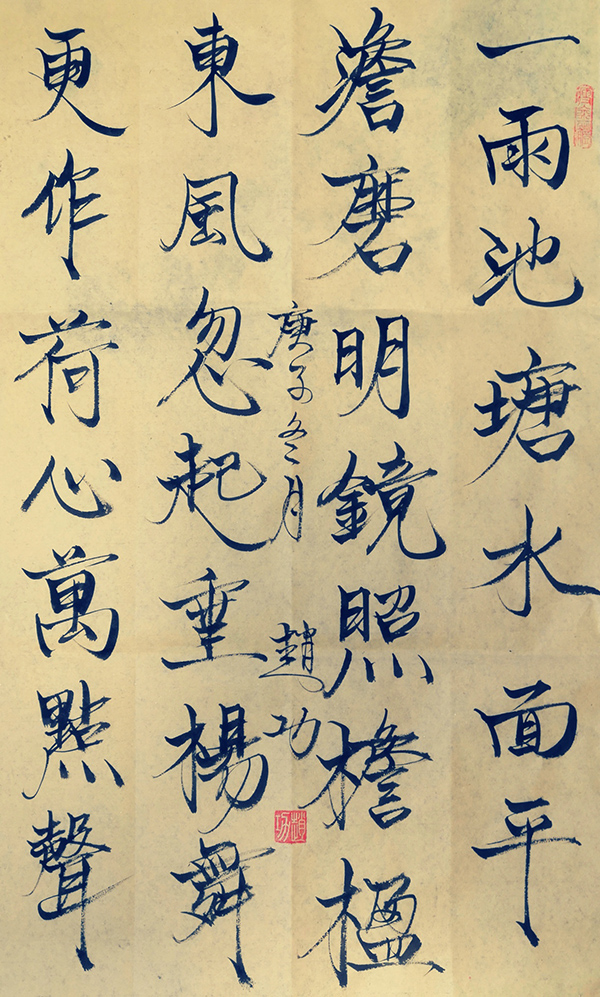 一雨池塘水面平
澹磨明鏡照檐楹
東風忽起垂楊舞
更作荷心萬點聲
庚子冬月 趙功
趙功